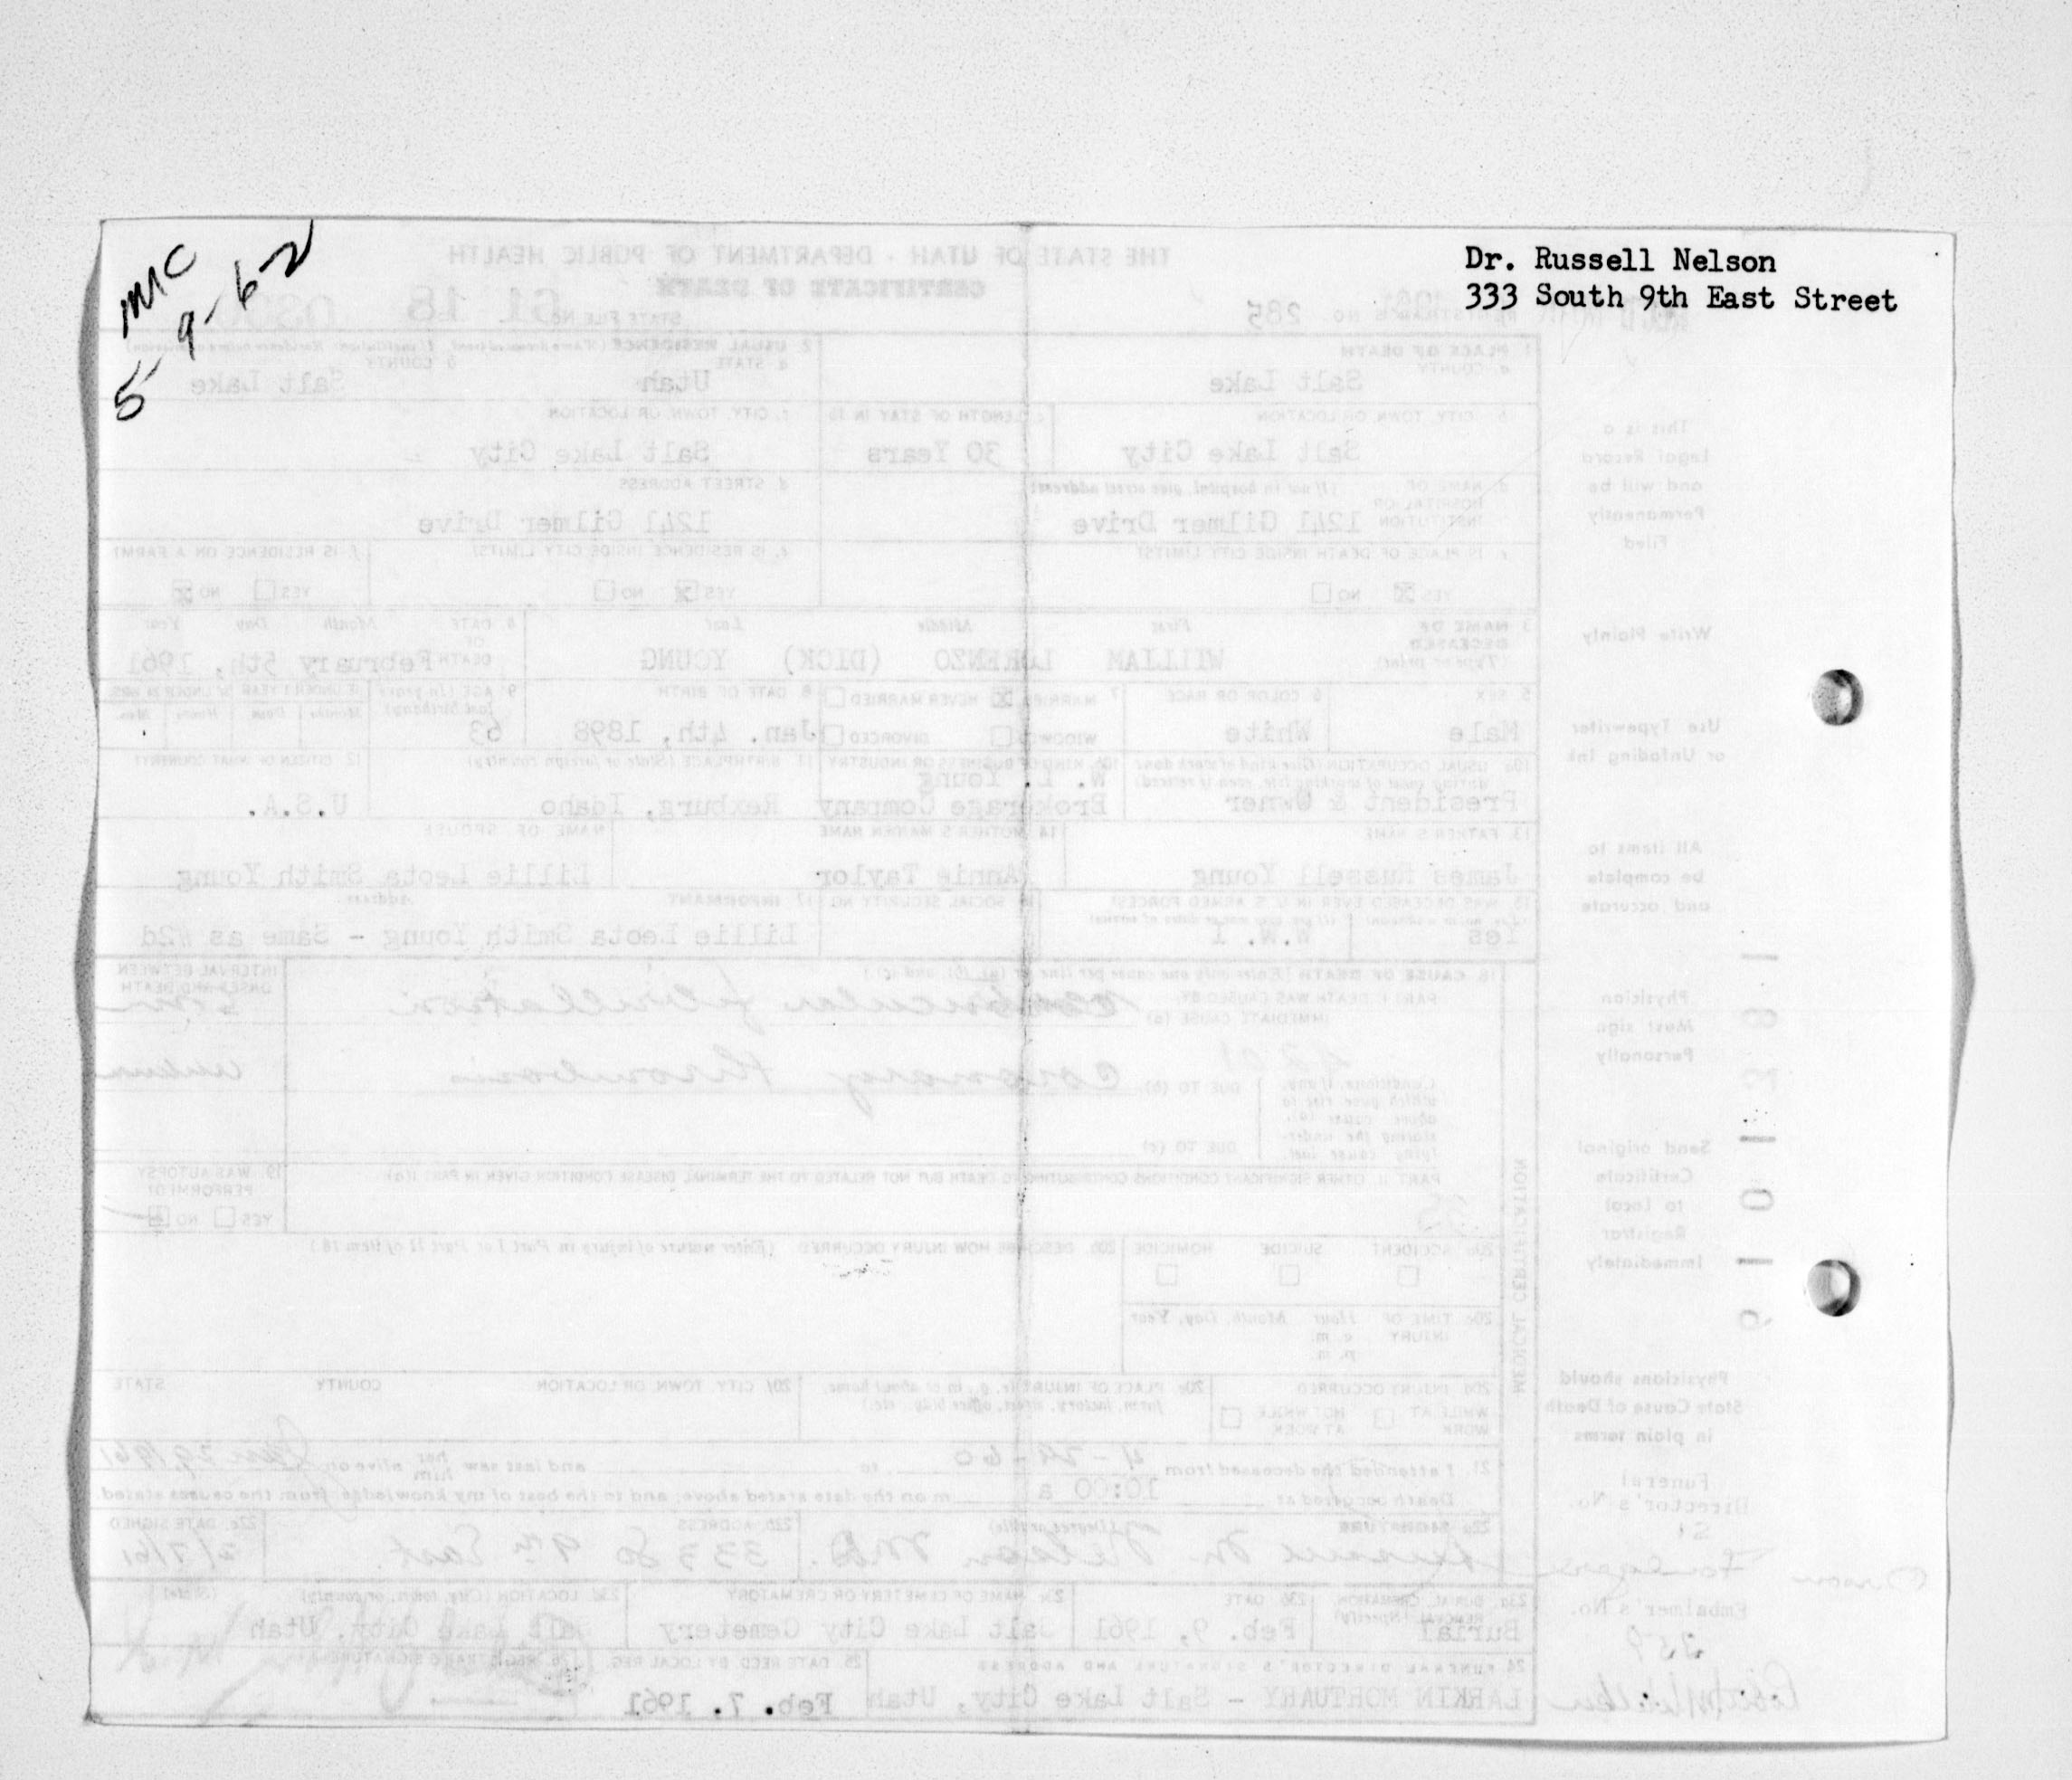 MC
5-9-62
Dr. Russell Nelson
333 South 9th East Street
THE STATE OF UTAH - DEPARTMENT OF PUBLIC HEALTH
CERTIFICATE OF DEATH
STATE FILE NO. 61 18
REGISTRAR'S NO. 285
1. PLACE OF DEATH
a. COUNTY
Salt Lake
2. USUAL RESIDENCE
a. STATE
Utah
b. COUNTY
Salt Lake
b. CITY, TOWN OR LOCATION
Salt Lake City
c. LENGTH OF STAY IN 1b
30 Years
c. CITY, TOWN OR LOCATION
Salt Lake City
d. NAME OF HOSPITAL OR INSTITUTION (If not in hospital, give street address)
1241 Gilmer Drive
d. STREET ADDRESS
1241 Gilmer Drive
e. IS PLACE OF DEATH INSIDE CITY LIMITS?
YES NO
e. IS RESIDENCE INSIDE CITY LIMITS?
YES NO
f. IS RESIDENCE ON A FARM?
YES NO
3. NAME OF DECEASED (Type or print)
First Middle Last
WILLIAM LORENZO (DICK) YOUNG
4. DATE OF DEATH
Month Day Year
February 5th, 1961
5. SEX
Male
6. COLOR OR RACE
White
7. MARRIED NEVER MARRIED
WIDOWED DIVORCED
8. DATE OF BIRTH
Jan. 4th, 1898
9. AGE (In years last birthday)
63
10a. USUAL OCCUPATION (Give kind of work done during most of working life, even if retired)
President & Owner
10b. KIND OF BUSINESS OR INDUSTRY
W. L. Young
Brokerage Company
11. BIRTHPLACE (State or foreign country)
Rexburg, Idaho
12. CITIZEN OF WHAT COUNTRY?
U.S.A.
13. FATHER'S NAME
James Russell Young
14. MOTHER'S MAIDEN NAME
Annie Taylor
NAME OF SPOUSE
Lillie Leota Smith Young
15. WAS DECEASED EVER IN U.S. ARMED FORCES?
Yes W.W. I
16. SOCIAL SECURITY NO.
17. INFORMANT Address
Lillie Leota Smith Young - Same as #2d
18. CAUSE OF DEATH [Enter only one cause per line for (a), (b), and (c).]
PART I. DEATH WAS CAUSED BY:
IMMEDIATE CAUSE (a)
Ventricular fibrillation
INTERVAL BETWEEN ONSET AND DEATH
Conditions, if any, which gave rise to above cause (a), stating the underlying cause last.
DUE TO (b)
Coronary thrombosis
DUE TO (c)
PART II. OTHER SIGNIFICANT CONDITIONS CONTRIBUTING TO DEATH BUT NOT RELATED TO THE TERMINAL DISEASE CONDITION GIVEN IN PART I(a)
19. WAS AUTOPSY PERFORMED?
YES NO
20a. ACCIDENT SUICIDE HOMICIDE
20b. DESCRIBE HOW INJURY OCCURRED (Enter nature of injury in Part I or Part II of item 18.)
20c. TIME OF INJURY Hour Month, Day, Year
a. m.
p. m.
20d. INJURY OCCURRED
WHILE AT WORK NOT WHILE AT WORK
20e. PLACE OF INJURY (e. g., in or about home, farm, factory, street, office bldg., etc.)
20f. CITY, TOWN, OR LOCATION COUNTY STATE
21. I attended the deceased from 4-29-60 to and last saw her him alive on Jan 29, 1961
Death occurred at 10:00 a m on the date stated above; and to the best of my knowledge, from the causes stated.
22a. SIGNATURE (Degree or title)
Russell M Nelson M.D.
22b. ADDRESS
333 So 9th East.
22c. DATE SIGNED
2/7/61
23a. BURIAL, CREMATION, REMOVAL (Specify)
Burial
23b. DATE
Feb. 9, 1961
23c. NAME OF CEMETERY OR CREMATORY
Salt Lake City Cemetery
23d. LOCATION (City, town, or county) (State)
Salt Lake City, Utah
24. FUNERAL DIRECTOR'S SIGNATURE AND ADDRESS
LARKIN MORTUARY - Salt Lake City, Utah
25. DATE RECD. BY LOCAL REG.
Feb. 7, 1961
26. REGISTRAR'S SIGNATURE
MEDICAL CERTIFICATION
This is a
Legal Record
and will be
Permanently
Filed
Write Plainly
Use Typewriter
or Unfading Ink
All items to
be complete
and accurate
Physician
Must sign
Personally
Send original
Certificate
to Local
Registrar
Immediately
Physicians should
State Cause of Death
in plain terms
Funeral
Director's No.
Embalmer's No.